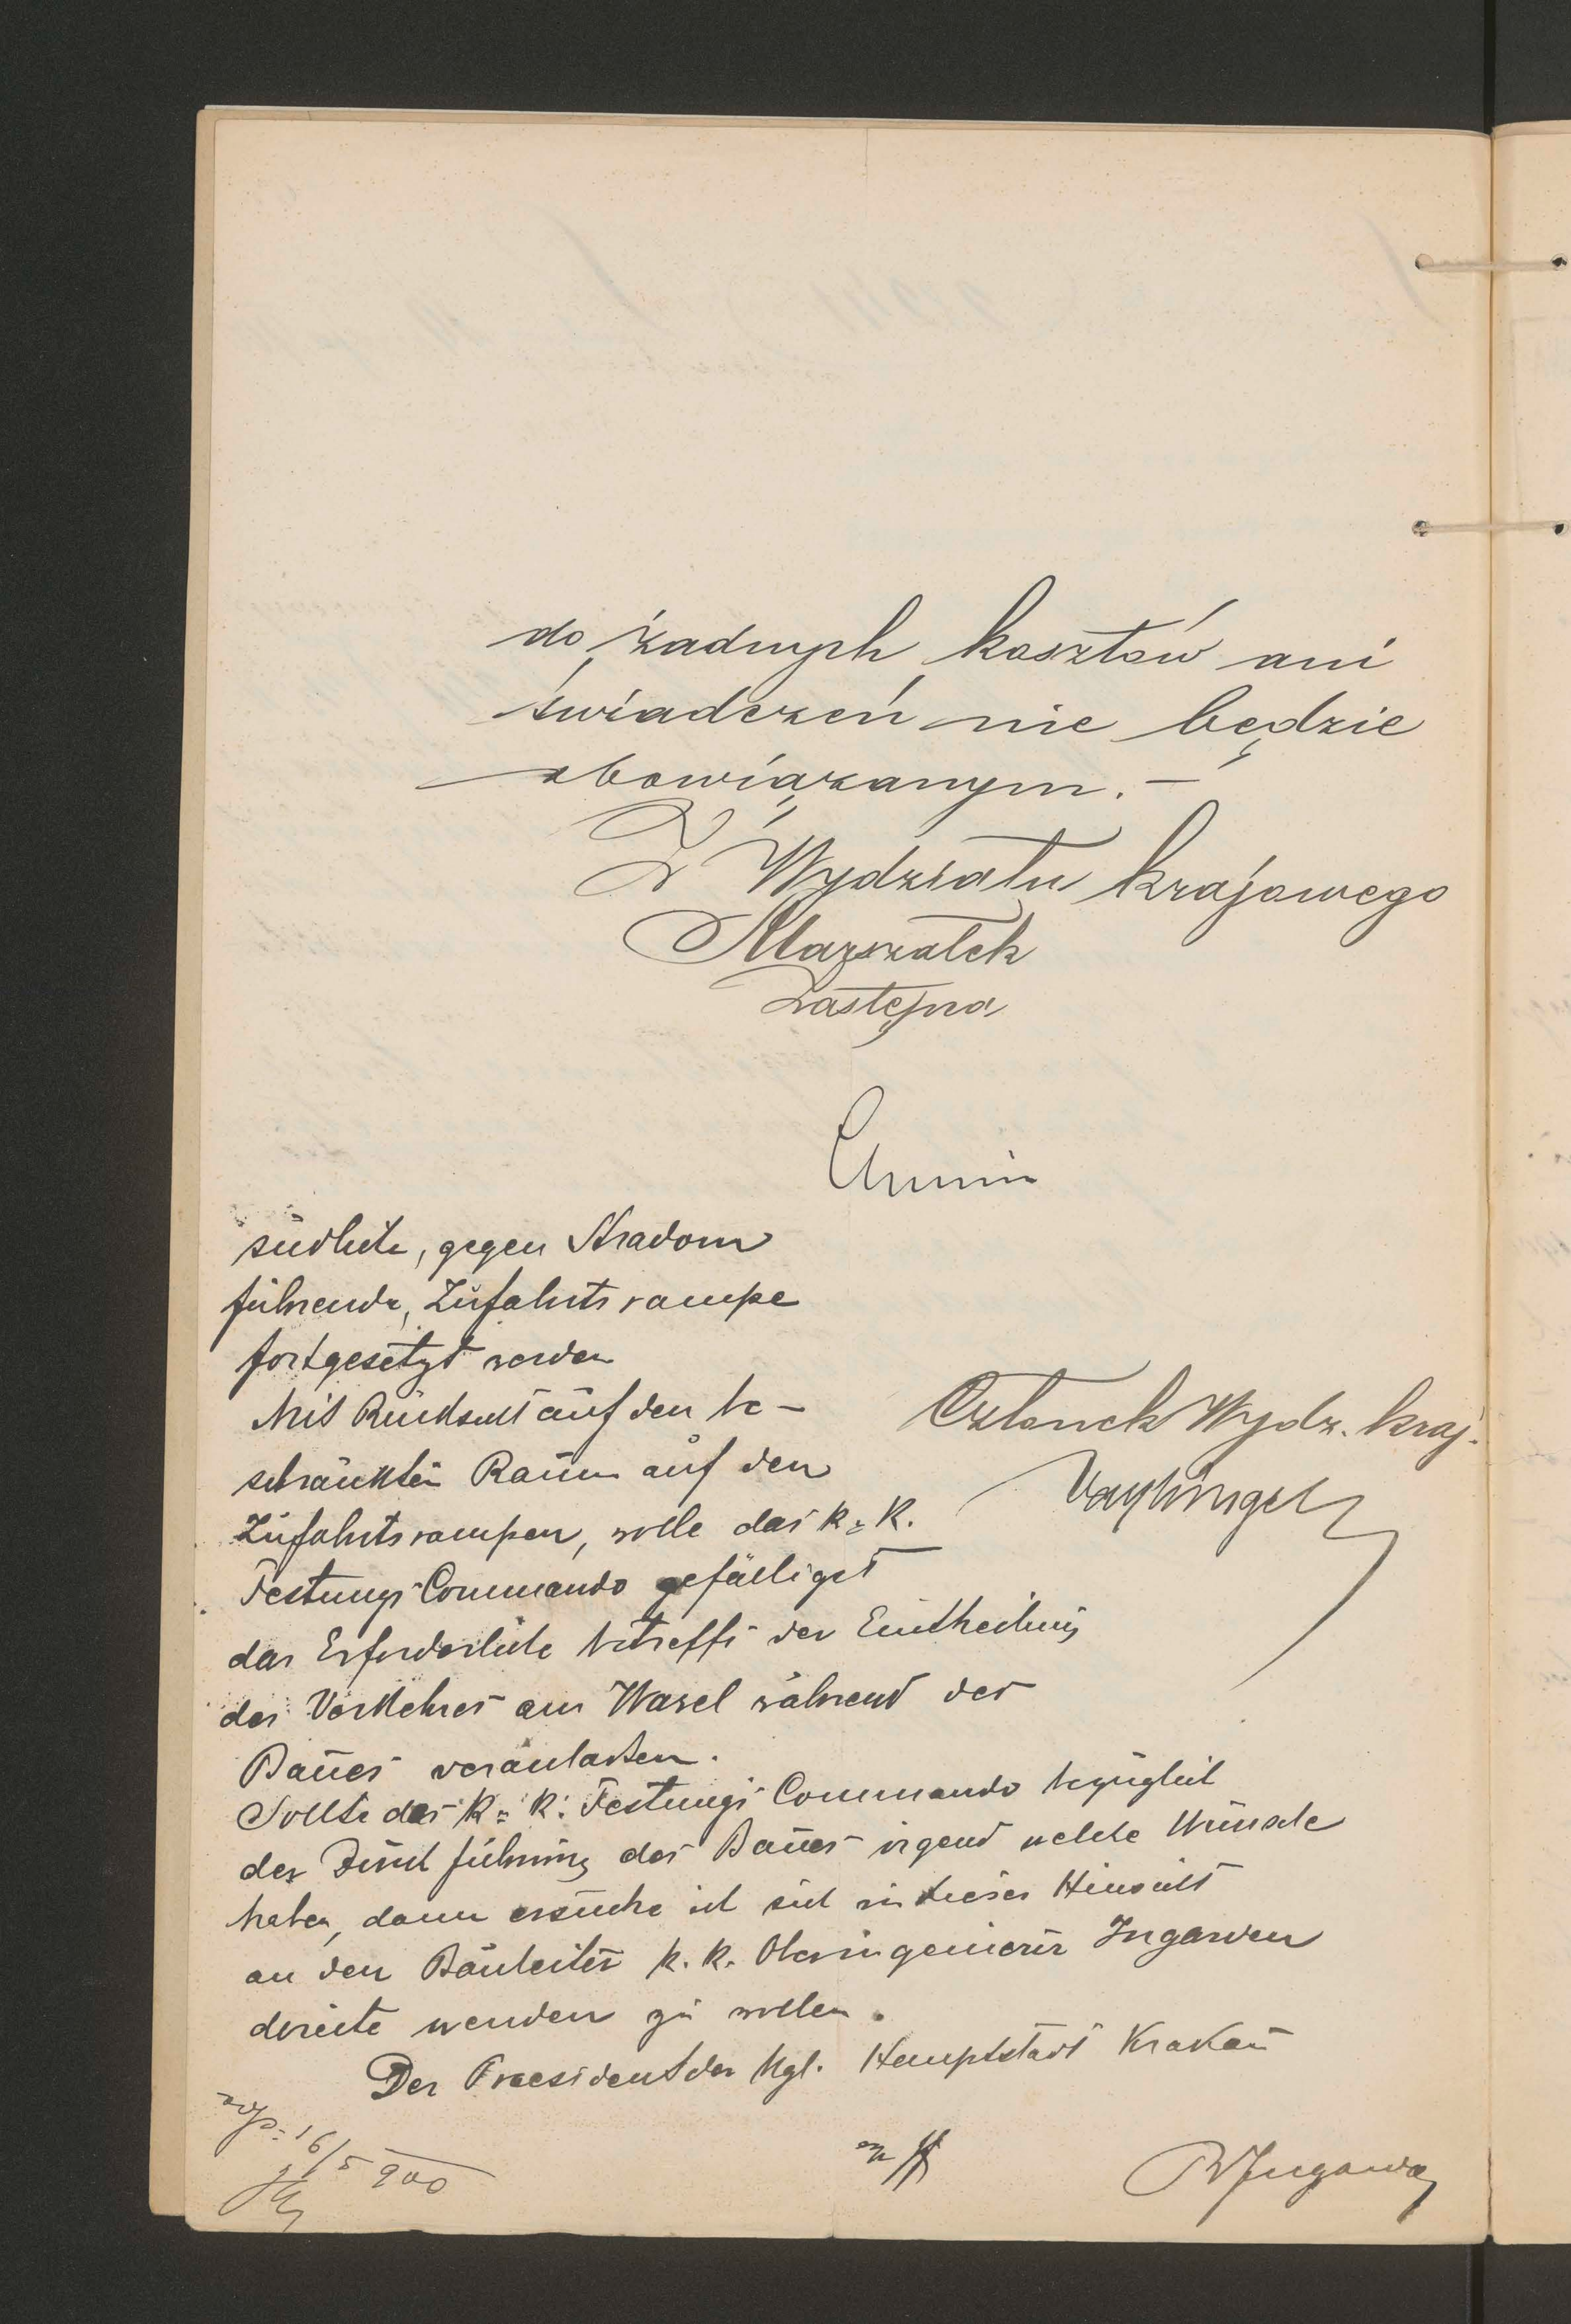 do żadnych kosztów ani
świadczeń nie będzie
obowiązanym. —
Z Wydziału krajowego
Marszałek
Zastępca
südliche, gegen Stradom
führende, Zufahrtsrampe
fortgesetzt werden
Mit Rücksicht auf den be-
schränkten Raum auf den
Zufahrtsrampen, wolle das k: k.
Festungs Commando gefälligst
das Erforderliche betreffs der Eintheilung
des Verkehres am Wawel während des
Baues veranlassen.
Sollte das k: k: Festungs Commando bezüglich
der Durchführung des Baues irgend welche Wünsche
haben, dann ersuche ich sich in dieser Hinsicht
an den Bauleiter k. k. Oberingenieur Ingarden
directe wenden zu wollen.
Der Praesident der kgl. Hauptstadt Krakau
Członek Wydz. kraj.
16/5 900
RIngarden